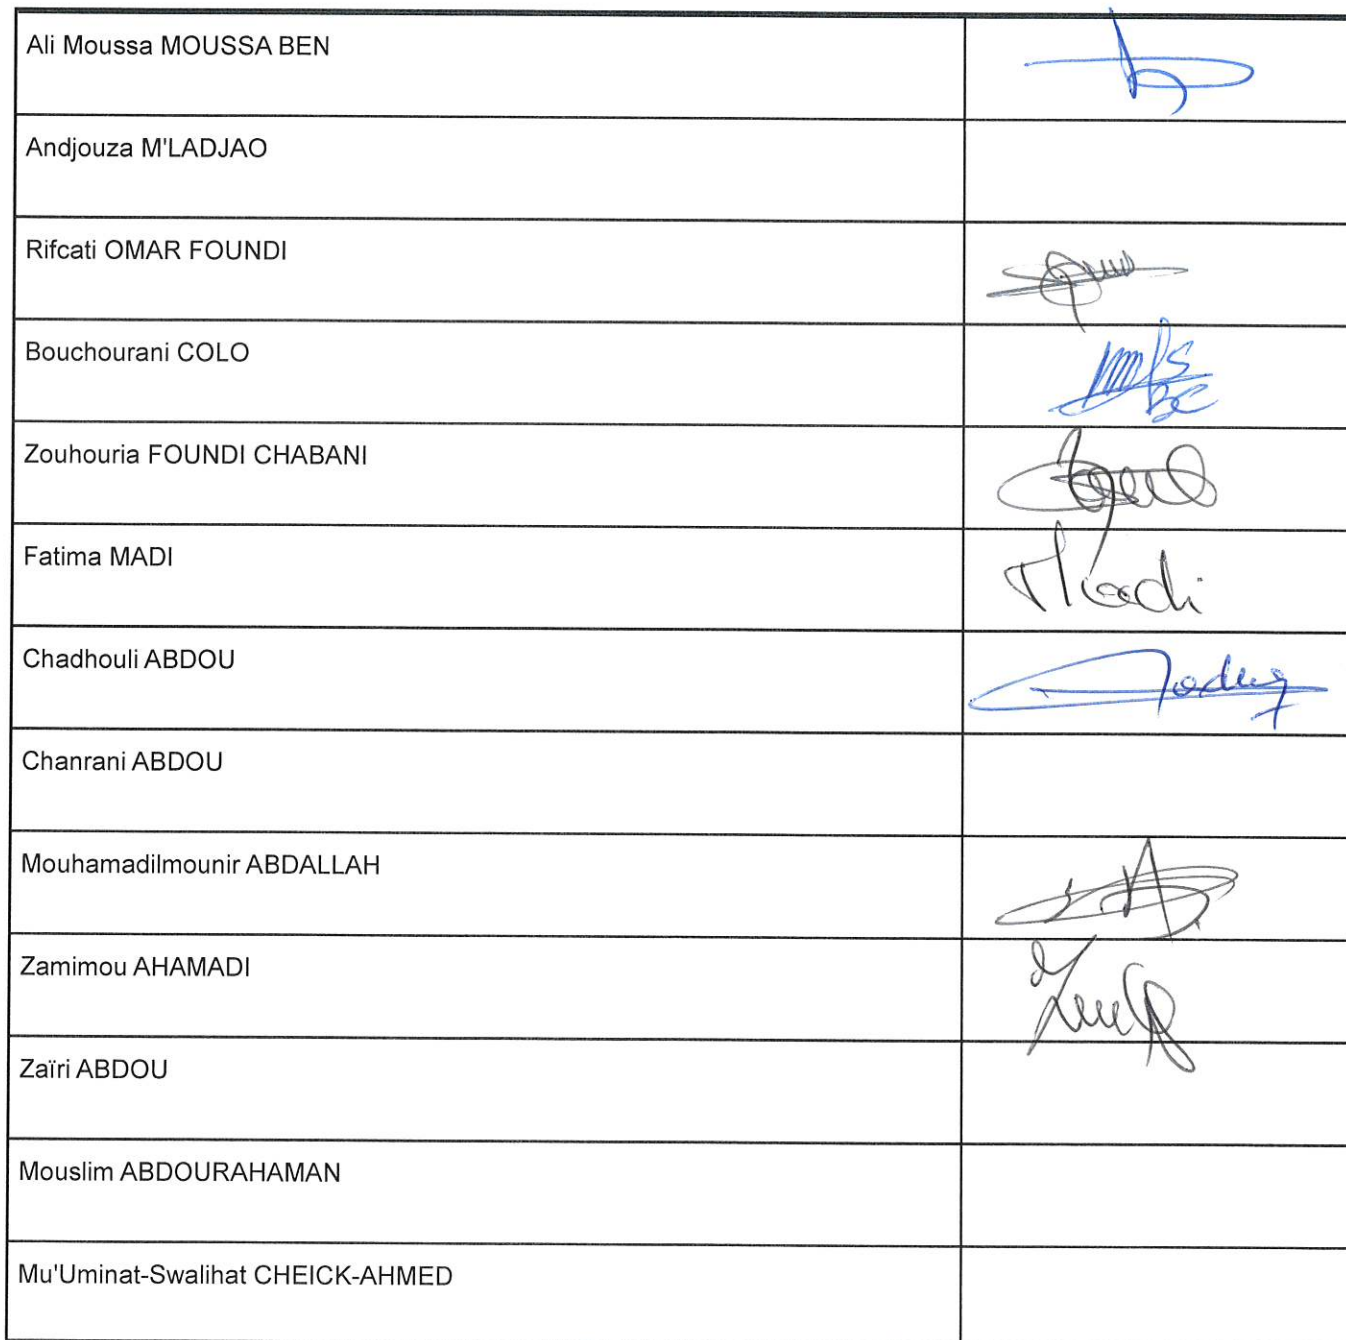 Ali Moussa MOUSSA BEN
Andjouza M'LADJAO
Rifcati OMAR FOUNDI
Bouchourani COLO
Zouhouria FOUNDI CHABANI
Fatima MADI
Madi
Chadhouli ABDOU
Chanrani ABDOU
Mouhamadilmounir ABDALLAH
Zamimou AHAMADI
Zaïri ABDOU
Mouslim ABDOURAHAMAN
Mu'Uminat-Swalihat CHEICK-AHMED